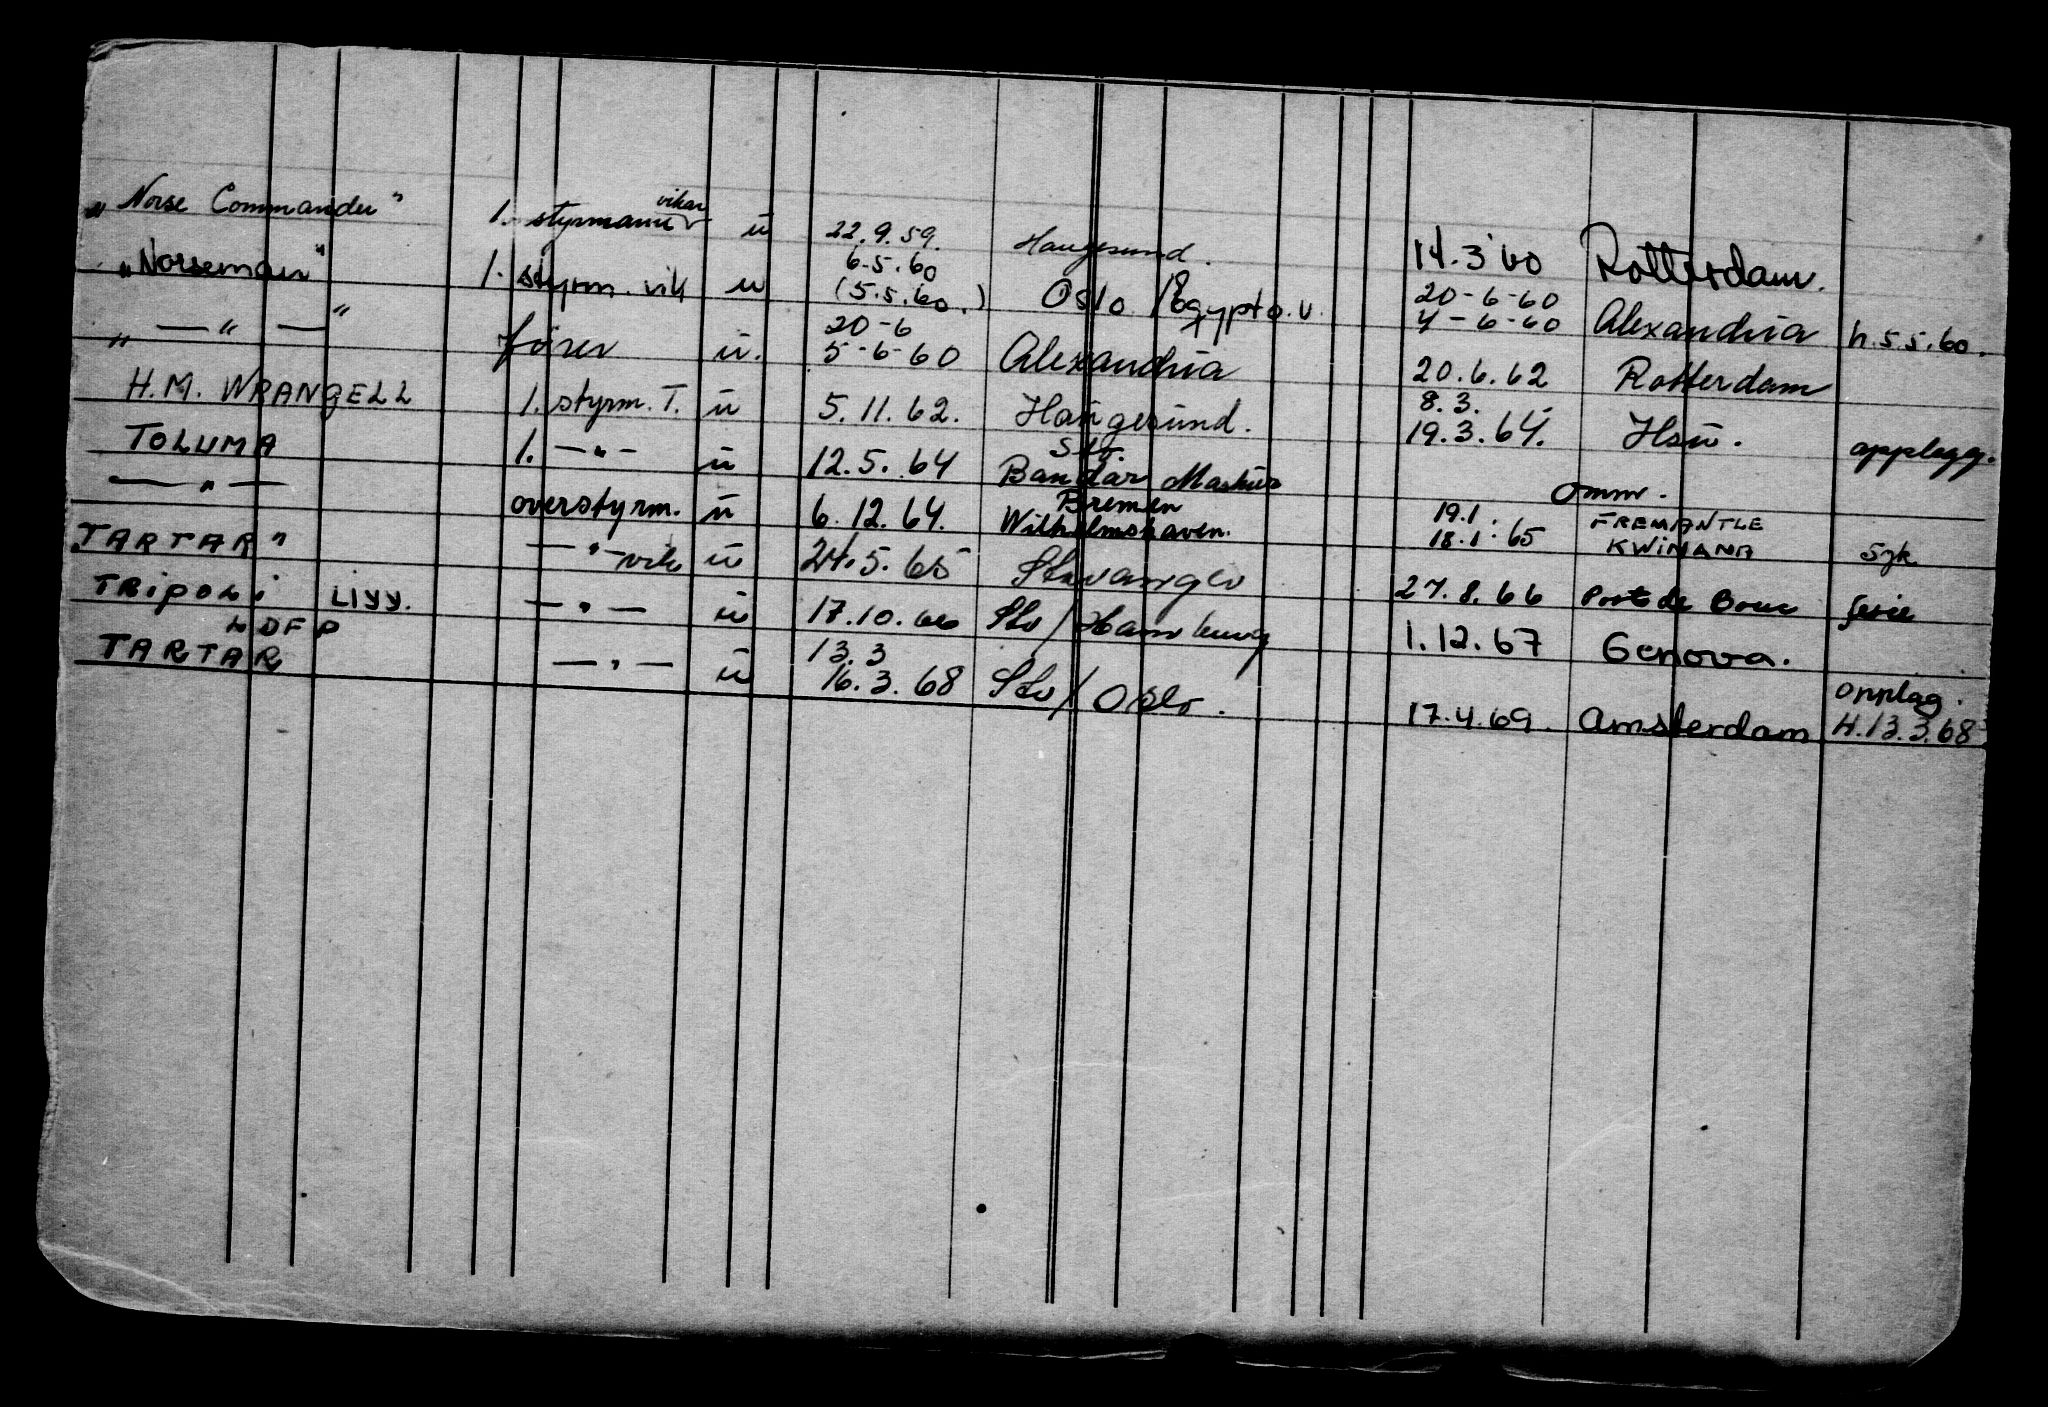 „Norse Commander" 1. styrmann vikar ū 22.9.59. Haugesund. 14.3 60 Rotterdam.
„Norseman" 1. styrm. vik u 6.5.60 (5.5.60.) Oslo / Egypt o.u. 20-6-60 4-6-60 Alexandria h.5.5.60.
„ — " — " fører ū. 20-6 5-6-60 Alexandria 20.6.62 Rotterdam
H.M. WRANGELL 1. styrm. T. ū 5.11.62. Haugesund. 8.3. 19.3.64. Hsū. opplegg.
TOLUMA 1. — " — ū 12.5.64 Stv. Bandar Mashur Omm.
— " — overstyrm. ū 6.12.64. Bremen Wilhelmshaven. 19.1. 18.1.65 FREMANTLE KWINANA Syk.
TARTAR" — " — vik ū 24.5.65 Stavanger 27.8.66 Port de Bouc ferie
TRIPOLI LIYY. — " — ū 17.10.66 Stv / Hamburg 1.12.67 Genova. opplag.
TARTAR LDFP — " — ū 13.3 16.3.68 Stv / Oslo. 17.4.69. Amsterdam H.13.3.68